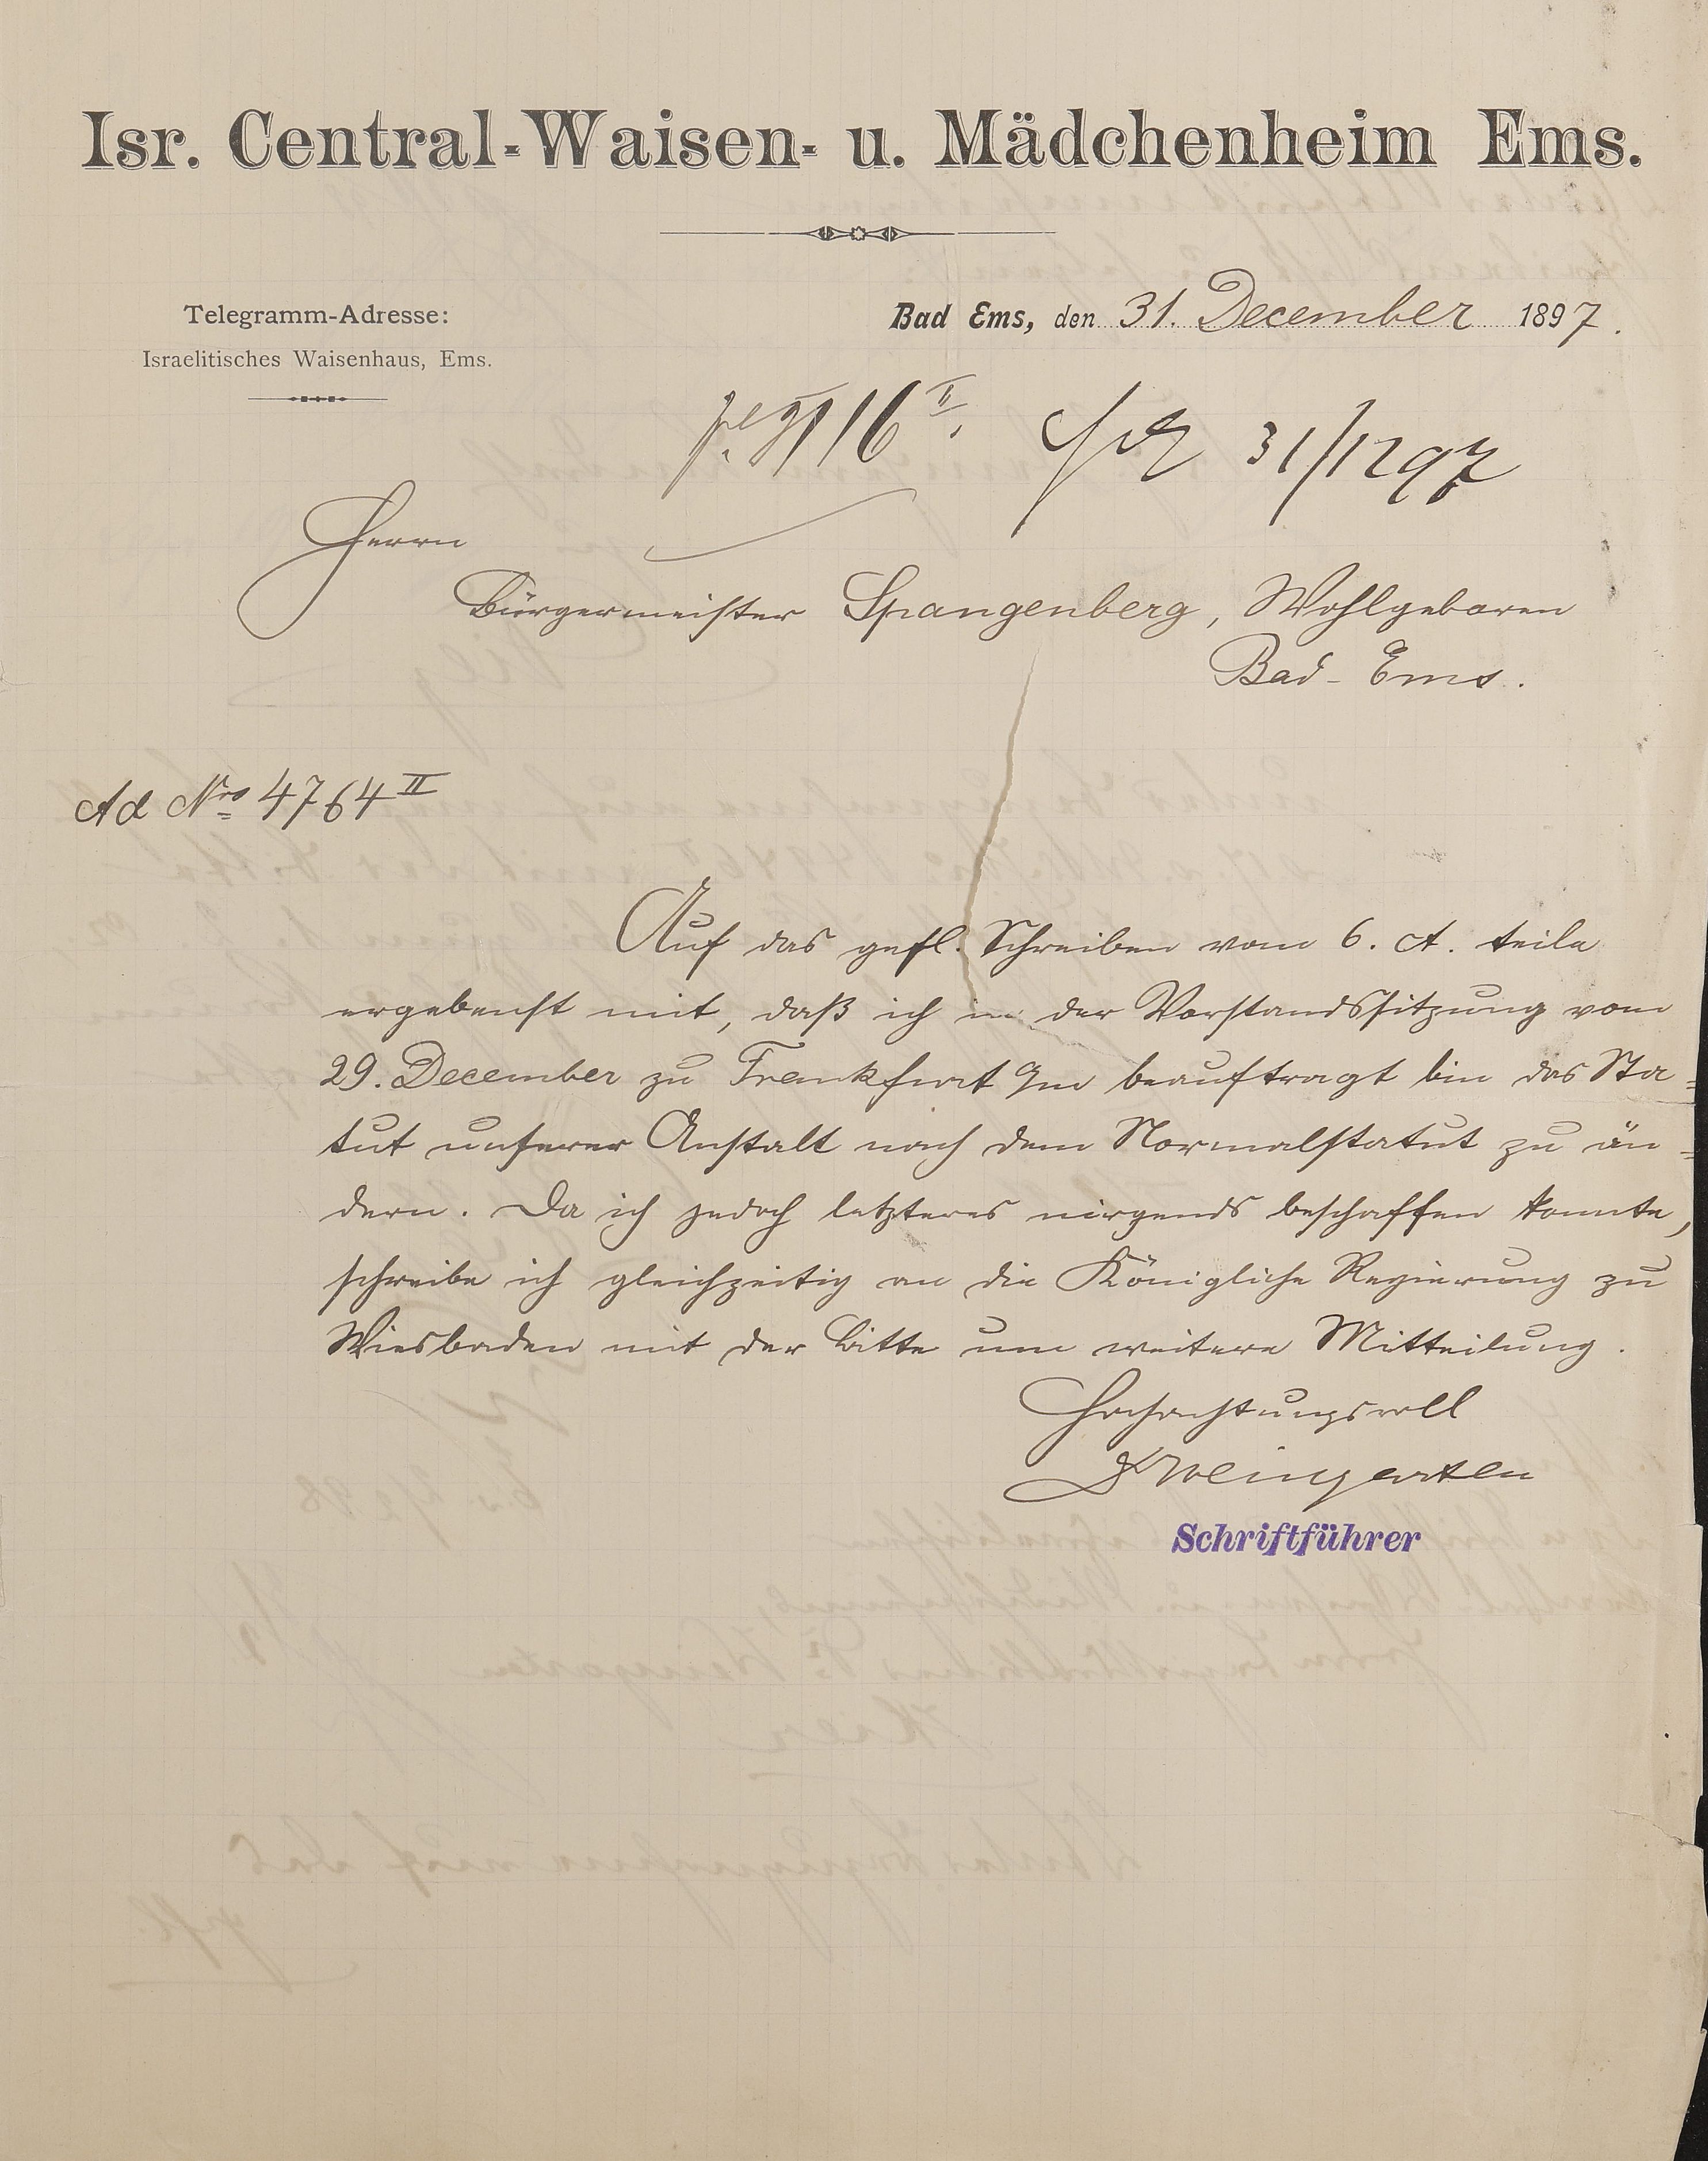 Isr. Central-Waisen- u. Mädchenheim Ems.
Telegramm-Adresse:
Israelitisches Waisenhaus, Ems.
Bad Ems, den 31. December 1897.
31/12 97
Herrn
Bürgermeister Spangenberg, Wohlgeboren
Bad-Ems.
Ad Nro 4764 II
Auf das gefl. Schreiben vom 6. ct. teile
ergebenst mit, daß ich in der Vorstandssitzung vom
29. December zu Frankfurt a/m beauftragt bin das Sta=
tut unserer Anstalt nach dem Normalstatut zu än=
dern. Da ich jedoch letzteres nirgends beschaffen konnte,
schreibe ich gleichzeitig an die Königliche Regierung zu
Wiesbaden mit der Bitte um weitere Mitteilung.
Hochachtungsvoll
Dr Weingarten
Schriftführer